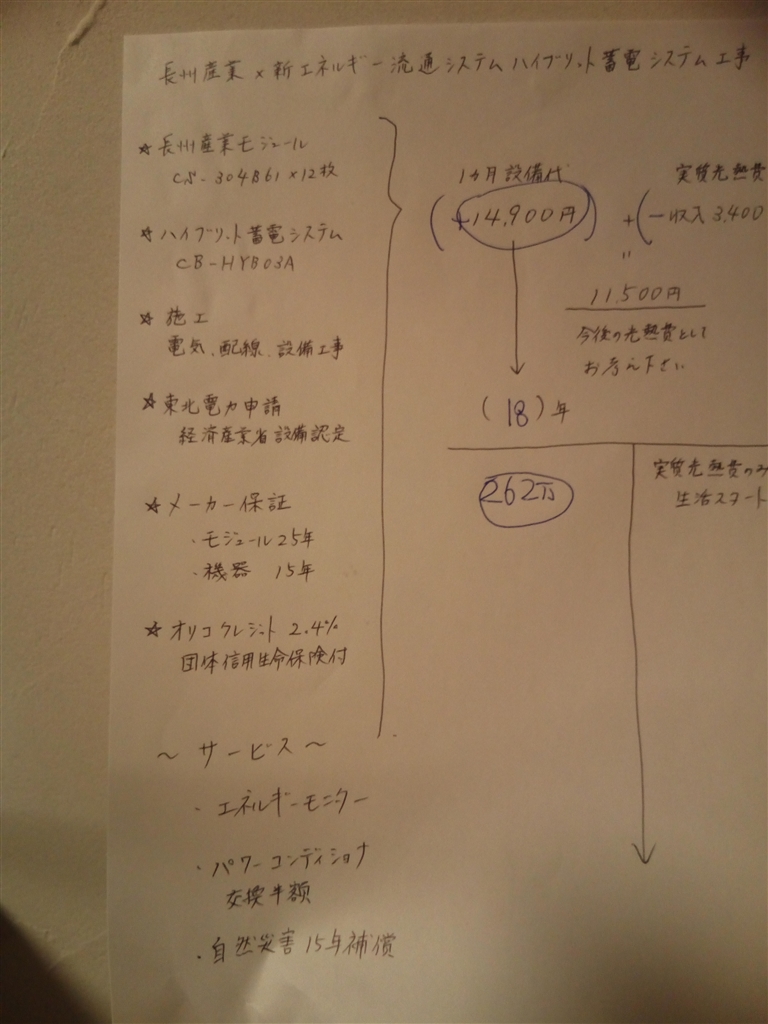 長州産業×新エネルギー流通システムハイブリット蓄電システム工事
☆長州産業モジュール
CS-304B61×12枚
☆ハイブリット蓄電システム
CB-HYB03A
☆施工
電気、配線、設備工事
☆東北電力申請
経済産業省設備認定
☆メーカー保証
・モジュール25年
・機器 15年
☆オリコクレジット 2.4%
団体信用生命保険付
～サービス～
・エネルギーモニター
・パワーコンディショナ
交換半額
・自然災害15年補償
1ヵ月設備代
(+14,900円)
+
実質光熱費
(-収入3,400
〃
11,500円
今後の光熱費として
お考え下さい
(18)年
262万
実質光熱費のみ
生活スタート